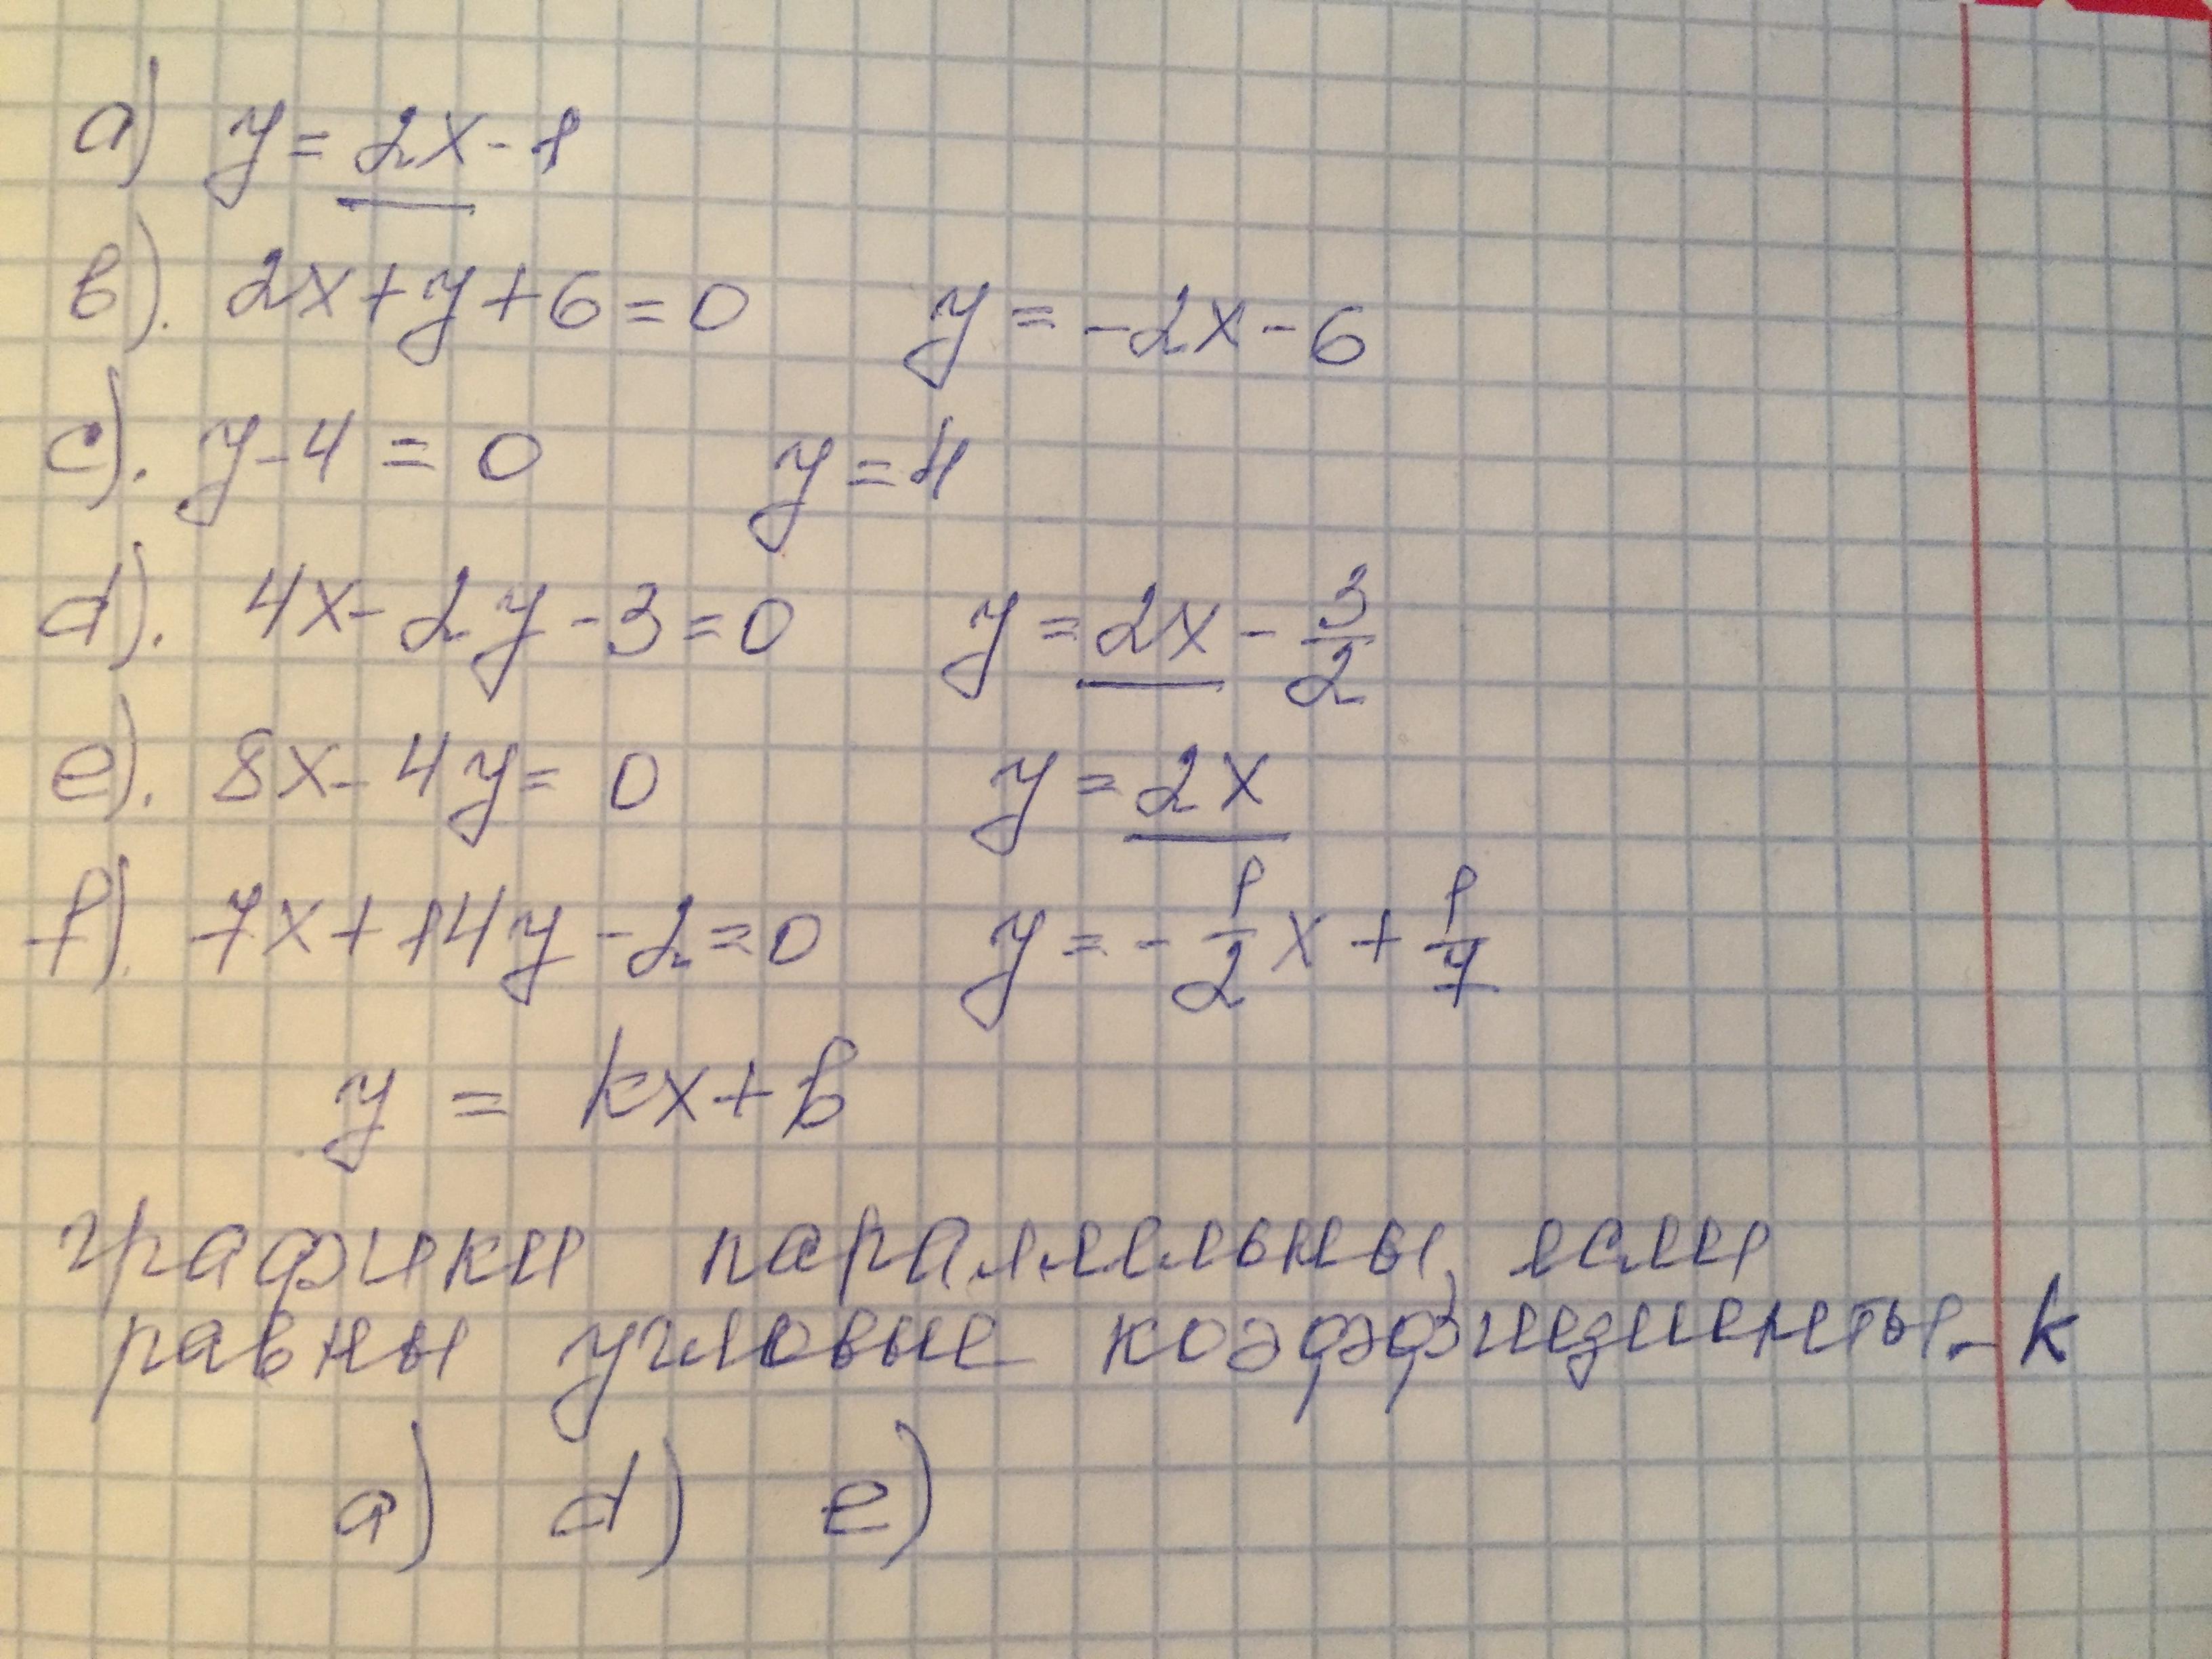 a) y = 2x - 1
b). 2x + y + 6 = 0 y = -2x - 6
c). y - 4 = 0 y = 4
d). 4x - 2y - 3 = 0 y = 2x - 3/2
e). 8x - 4y = 0 y = 2x
f). 7x + 14y - 2 = 0 y = - 1/2 x + 1/7
y = kx + b
графики параллельны, если
равны угловые коэффициенты - k
a) d) e)